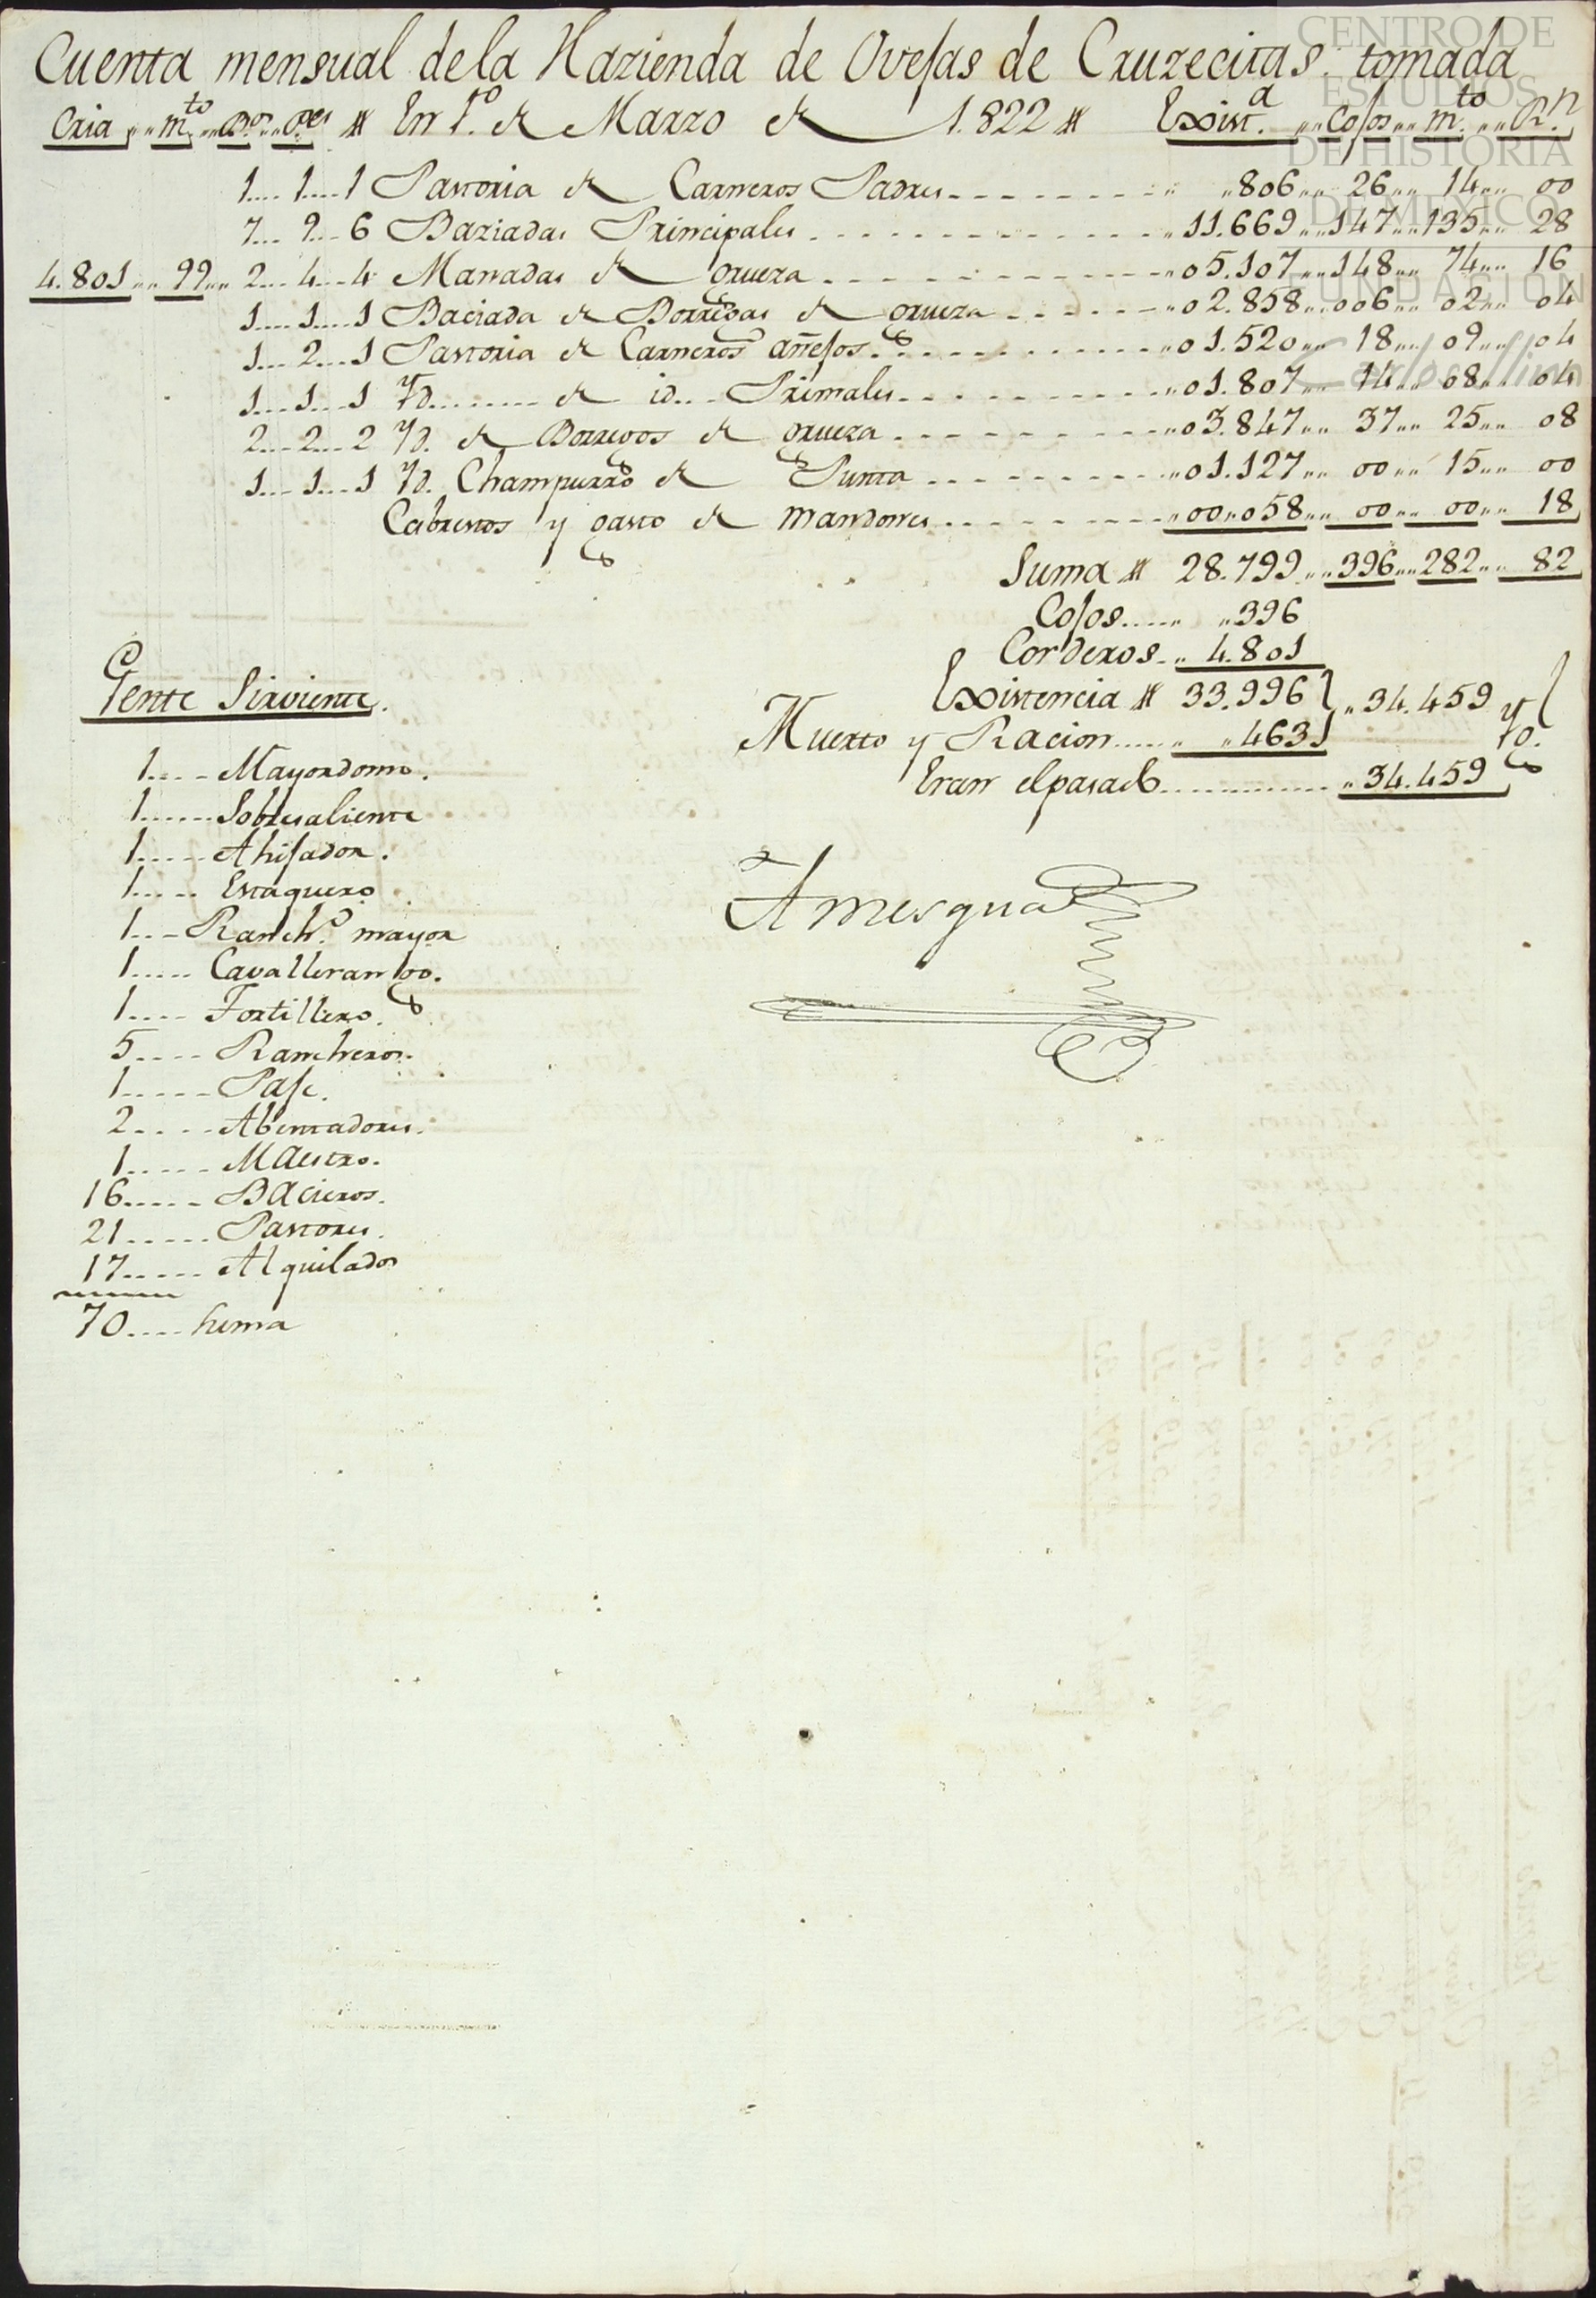 Cuenta mensual dela Hazienda de Ovejas de Cruzecitas, tomada
Cria,, ,,m.to,, ,,P.os,, ,,P.es # En 1.º de Marzo de 1.822 # Exist.a ,, ,,Cojos,, ,,m.to,, ,,R.n
1.... 1.... 1 Pastoria de Carneros Padres - - - - ,, ,,806,, ,,26,, ,,14,, ,,00
7.... 9.... 6 Baziadas Principales - - - - ,,11.669,, ,,147,, ,,135,, ,,28
4.801,, ,,99,, ,,2.... 4.... 4 Manadas de grueza - - - - ,,05.107,, ,,148,, ,,74,, ,,16
1.... 1.... 1 Baciada de Borregas de grueza - - - - ,,02.858,, ,,006,, ,,02,, ,,04
1... 2.... 1 Pastoria de Carneros añejos - - - - ,,01.520,, ,,18,, ,,09,, ,,04
1.... 1.... 1 Yd........ de id.... Primales - - - - ,,01.807,, ,,14,, ,,08,, ,,04
2.... 2.... 2 Yd. de Borregos de grueza - - - - ,,03.847,, ,,37,, ,,25,, ,,08
1.... 1.... 1 Yd. Champurro de Punta - - - - ,,01.127,, ,,00,, ,,15,, ,,00
Cabrestos y gasto de mandones - - - - ,,00,,058,, ,,00,, ,,00,, ,,18
Suma # 28.799,, ,,396,, ,,282,, ,,82
Cojos...... ,,396
Corderos.. ,, 4.801
Existencia # 33.996 } ,,34.459 } y
Muerto y Racion...... ,,463 Yg.
Eran el pasado.............. ,,34.459
Gente Sirviente.
1.... Mayordomo.
1...... Sobresaliente
1..... Ahijador.
1..... Estaquero
1... Ranch.º mayor
1..... Cavallerango.
1.... Tortillero.
5.... Rancheros.
1..... Paje.
2..... Abentadores.
1..... Maestro.
16..... Bacieros.
21..... Pastores.
17..... Alquilados
70.... suma
Amesgua
CENTRO DE
ESTUDIOS
DE HISTORIA
DE MÉXICO
FUNDACIÓN
Carlos Slim